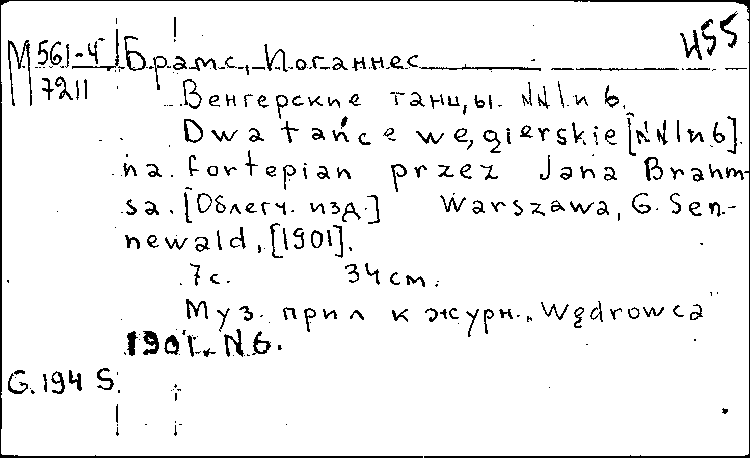 455
М 561-4 Брамс, Иоганнес
7211
Венгерские танцы. NN 1 и 6.
Dwa tańce węgierskie [NN 1 и 6]
na fortepian przez Jana Brahm-
sa. [Облегч. изд.] Warszawa, G. Sen-
newald, [1901].
7 с. 34 см.
Муз. прил к журн. „Wędrowca"
1901. N 6.
G. 194 S.